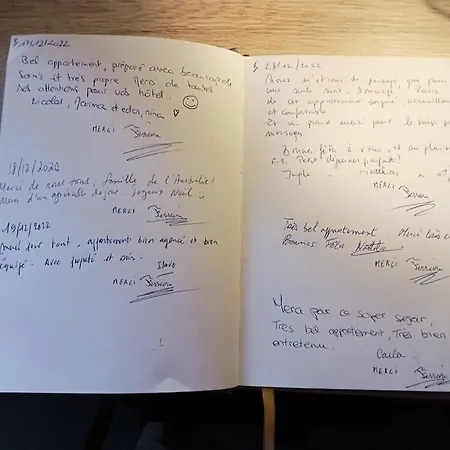 17/12/2022
Bel appartement, préparé avec beaucoup de
soins et très propre Merci de toutes
vos attentions pour vos hôtes.
Nicolas, Marina et eden, nina
MERCI
18/12/2022
Merci de nous tous, famille de l'Australie!
Merci d'un agréable séjour. Joyeux Noël
MERCI
19/12/2022
Merci pour tout, appartement bien agencé et bien
équipé. Avec
MERCI
27/12/2022
Nous n'étions de passage que pour
une seule nuit. Dommage!
de cet appartement soigné, accueillant
et confortable
Et un grand merci pour le
messages
Bonnes fêtes à vous, et au plaisir
P.S. Petit déjeuner parfait!
MERCI
Très bel appartement Merci
Bonnes Fêtes
MERCI
Merci par ce super séjour,
Très bel appartement, Très bien
entretenu.
Carla
MERCI